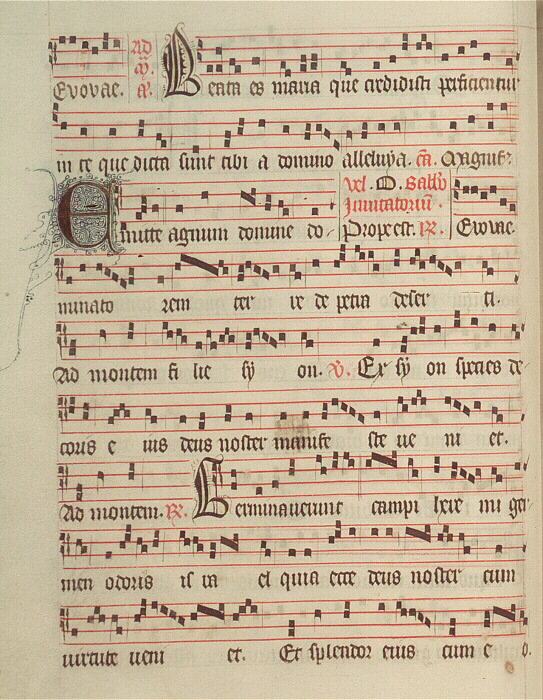 Evovae. Ad ꝟ. a. Beata es maria que credidisti perficientur
in te que dicta sunt tibi a domino alleluya. ca. Magnif
Emitte agnum domine do Vel. D. Sabbo Invitatoriu Prope est. ꝶ. Evovae.
minato rem ter re de petra deser ti.
Ad montem fi lie sy on. ꝟ. Ex sy on species de
coris e ius deus noster manife ste ve ni et.
Ad montem. ꝶ. Germinaverunt campi here mi ger
men odoris is ra el quia ecce deus noster cum
virtute veni et. Et splendor eius cum e o.